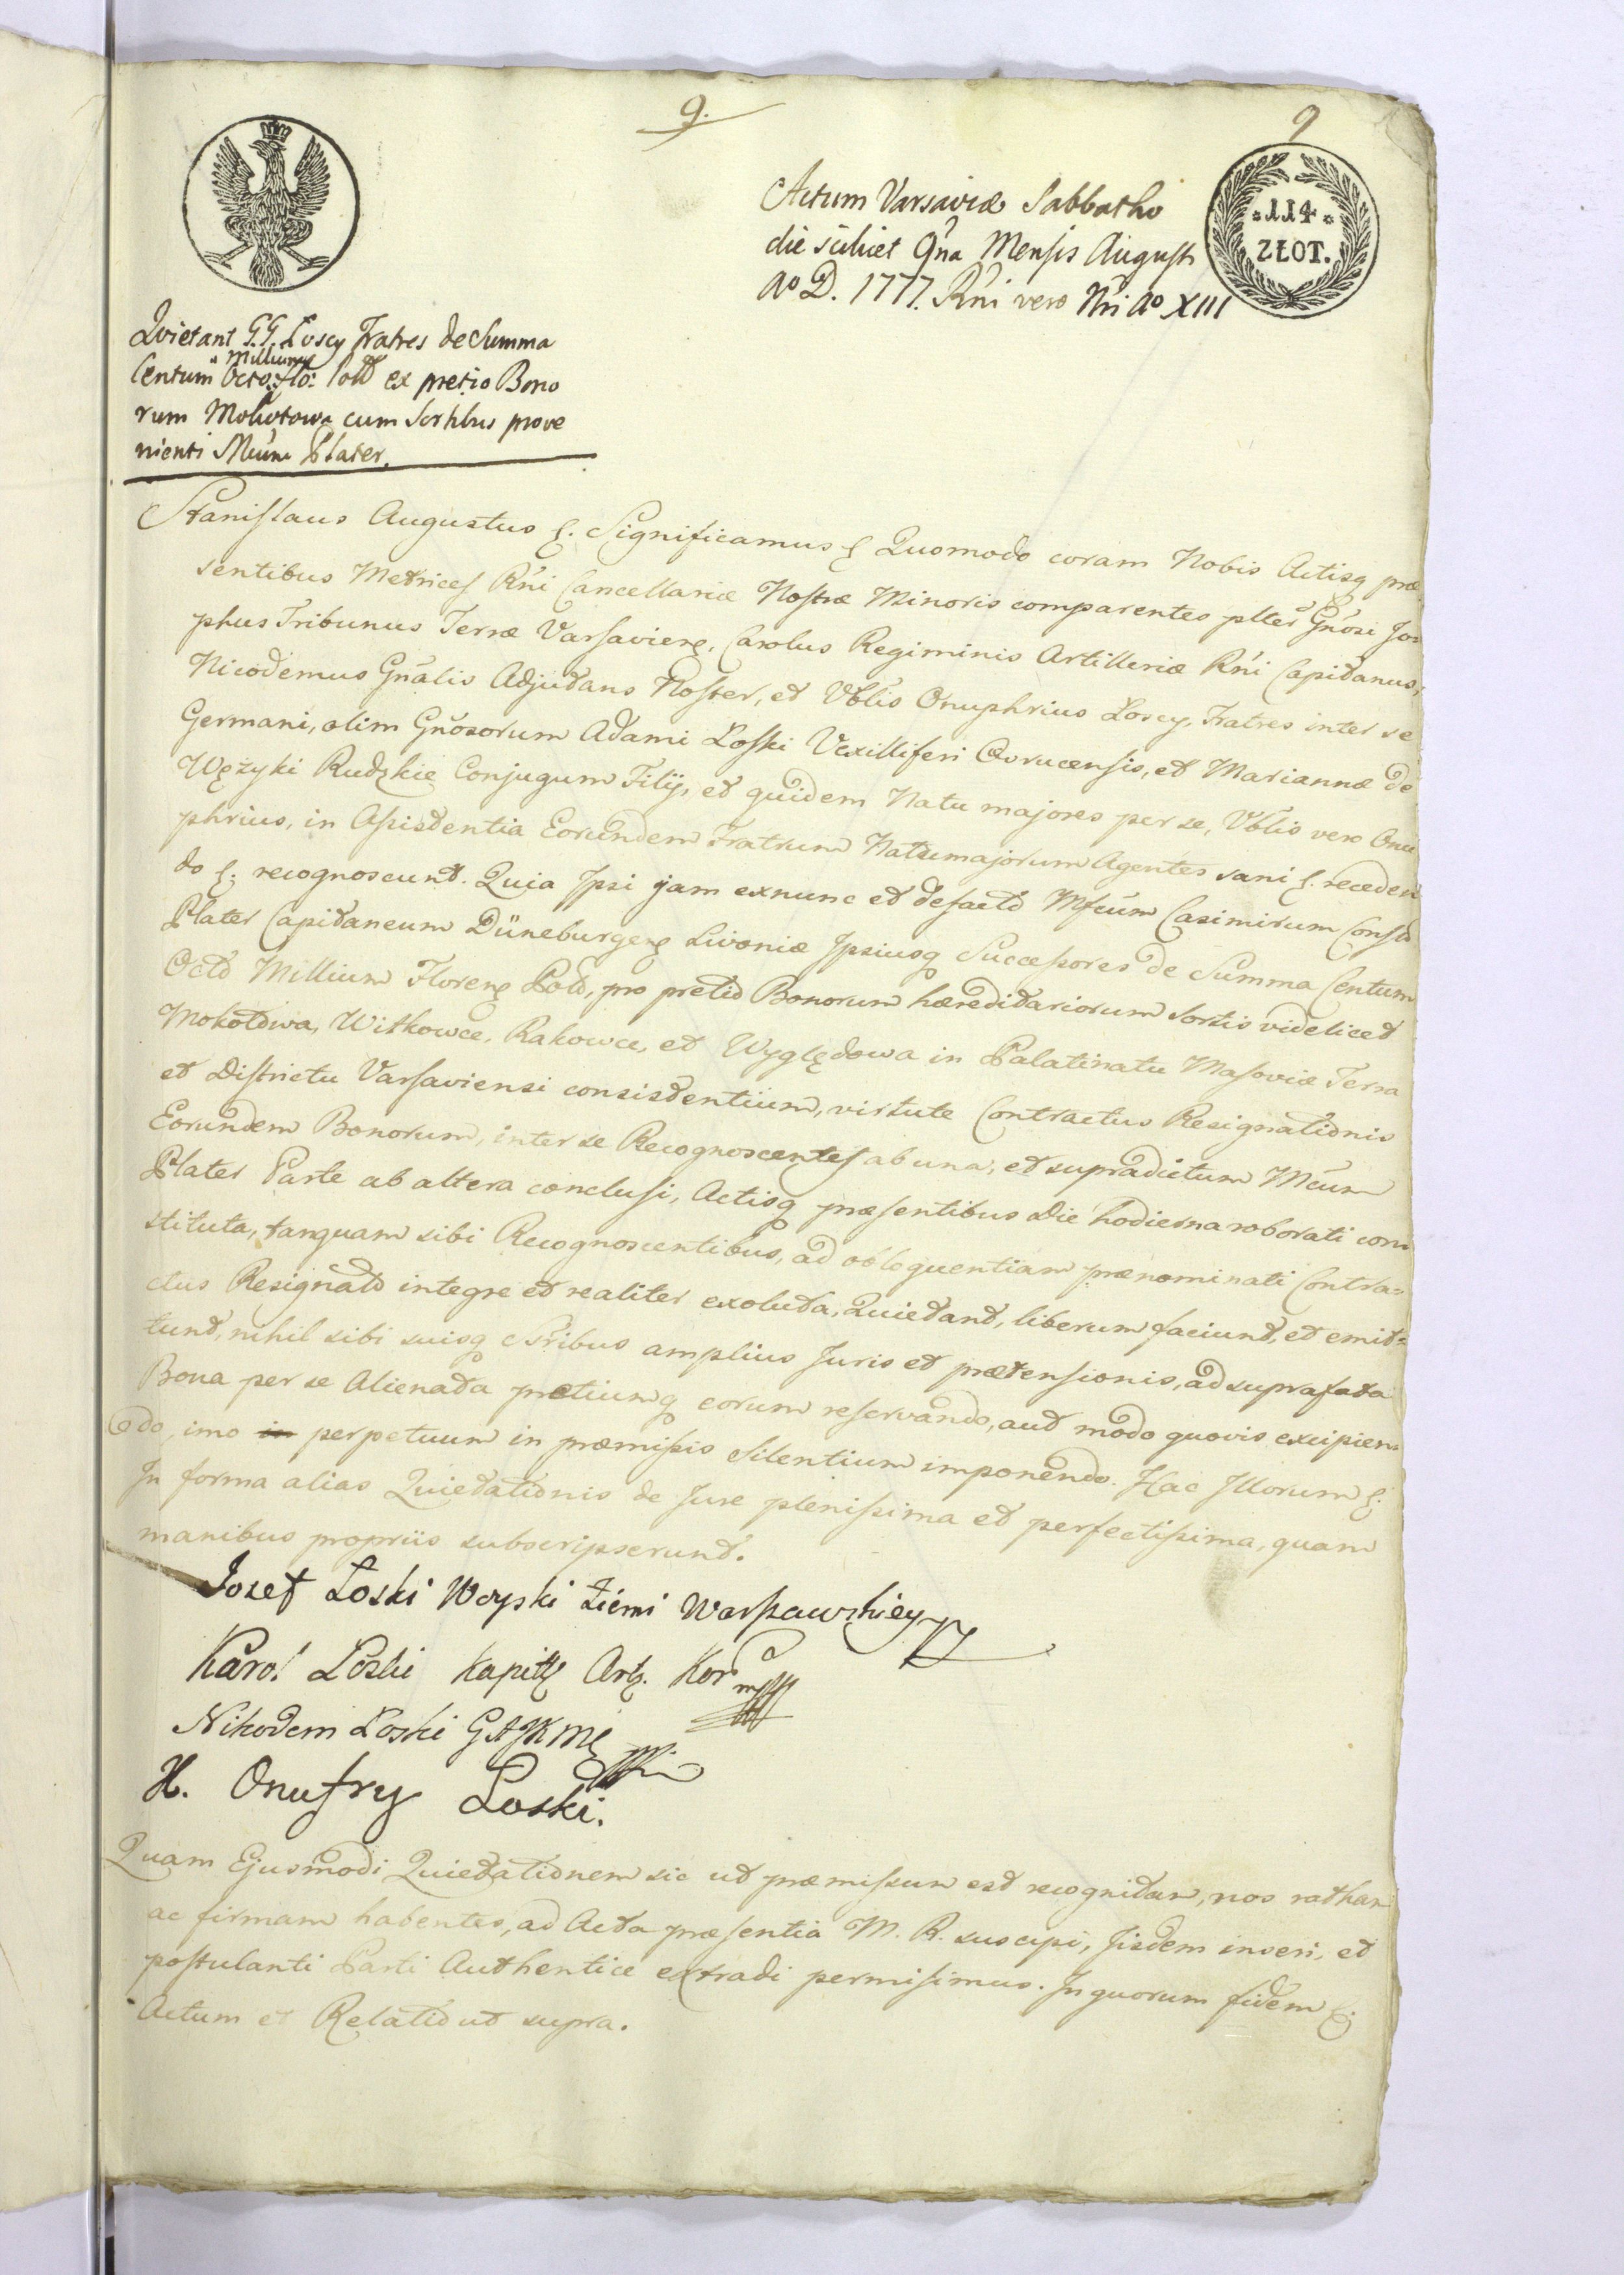 9.
9
114
ZŁOT.
Actum Varsaviæ Sabbatho
die scilicet 9na Mensis Augusti
Ao D. 1777. Rñi vero Nri Ao XIII
Quietant G.G. Łoscy Fratres de Summa
Centum Octo Millium Flo: Pold ex pretio Bono
rum Mokotowa cum Sortibus prove
nienti Mcum Plater.
Stanislaus Augustus &. Significamus & Quomodo coram Nobis Actisq præ
sentibus Metrices Rñi Cancellariæ Nostræ Minoris comparentes pltter Gnosi Jos
phus Tribunus Terræ Varsavien, Carolus Regiminis Artilleriæ Rñi Capitanus,
Nicodemus Gñalis Adjutans Noster, et Vblis Onuphrius Łoscy, Fratres inter se
Germani, olim Gñosorum Adami Łoski Vexilliferi Ovrucensis, et Mariannæ de
Wężyki Rudzkie Conjugum Filij, et quidem Natu majores per se, Vblis vero Onu
phrius, in Assistentia Eorundem Fratrum Natu majorum Agentes sani &. receden
do &. recognoscunt. Quia Ipsi jam exnunc et defacto Mfcum Casimirum Const
Plater Capitaneum Düneburgen Livoniæ Ipsiusq Successores de Summa Centum
Octo Millium Floren Pold, pro pretio Bonorum hæreditariorum Sortis videlicet
Mokotowa, Witkowce, Rakowce, et Wyględowa in Palatinatu Masoviæ Terra
et Districtu Varsaviensi consistentium, virtute Contractus Resignationis
Eorundem Bonorum, inter se Recognoscentes ab una, et supradictum Mcum
Plater Parte ab altera conclusi, Actisq præsentibus die hodierna roborati con
stituta, tanquam sibi Recognoscentibus, ad obloquentiam prænominati Contra=
ctus Resignato integre et realiter exoluta, Quietant, liberum faciunt, et emit=
tunt, nihil sibi suisq Sribus amplius Juris et prætensionis, ad suprafata
Bona per se Alienata pretiumq eorum reservando, aut modo quovis excipien=
do, imo in perpetuum in præmissis Silentium imponendo. Hac Illorum &.
In forma alias Quietationis de Jure plenissima et perfectissima, quam
manibus propriis subscripserunt.
Josef Łoski Woyski Ziemi Warszawskiey
Karol Łoski Kapitt Art. Kor
Nikodem Łoski G A J K Mc
H. Onufry Łoski.
Quam Ejusmodi Quietationem sic ut præmissum est recognitam, nos ratham
ac firmam habentes, ad Acta præsentia M. R. suscipi, Iisdem inseri, et
postulanti Parti Authentice extradi permisimus. In quorum fidem &.
Actum et Relatio ut supra.